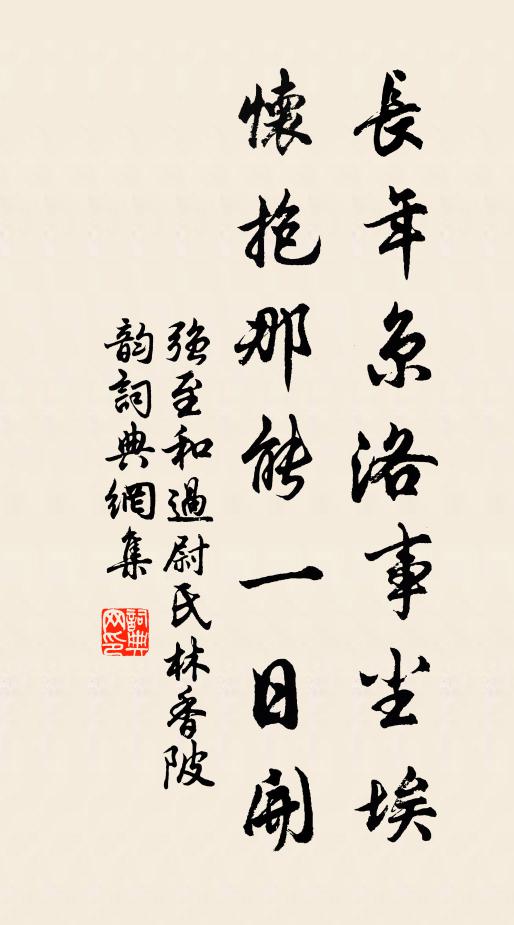 長年京洛事尘埃
懷抱那能一日開
强至和過尉氏林香陂
韵詞典網集
詞典网印